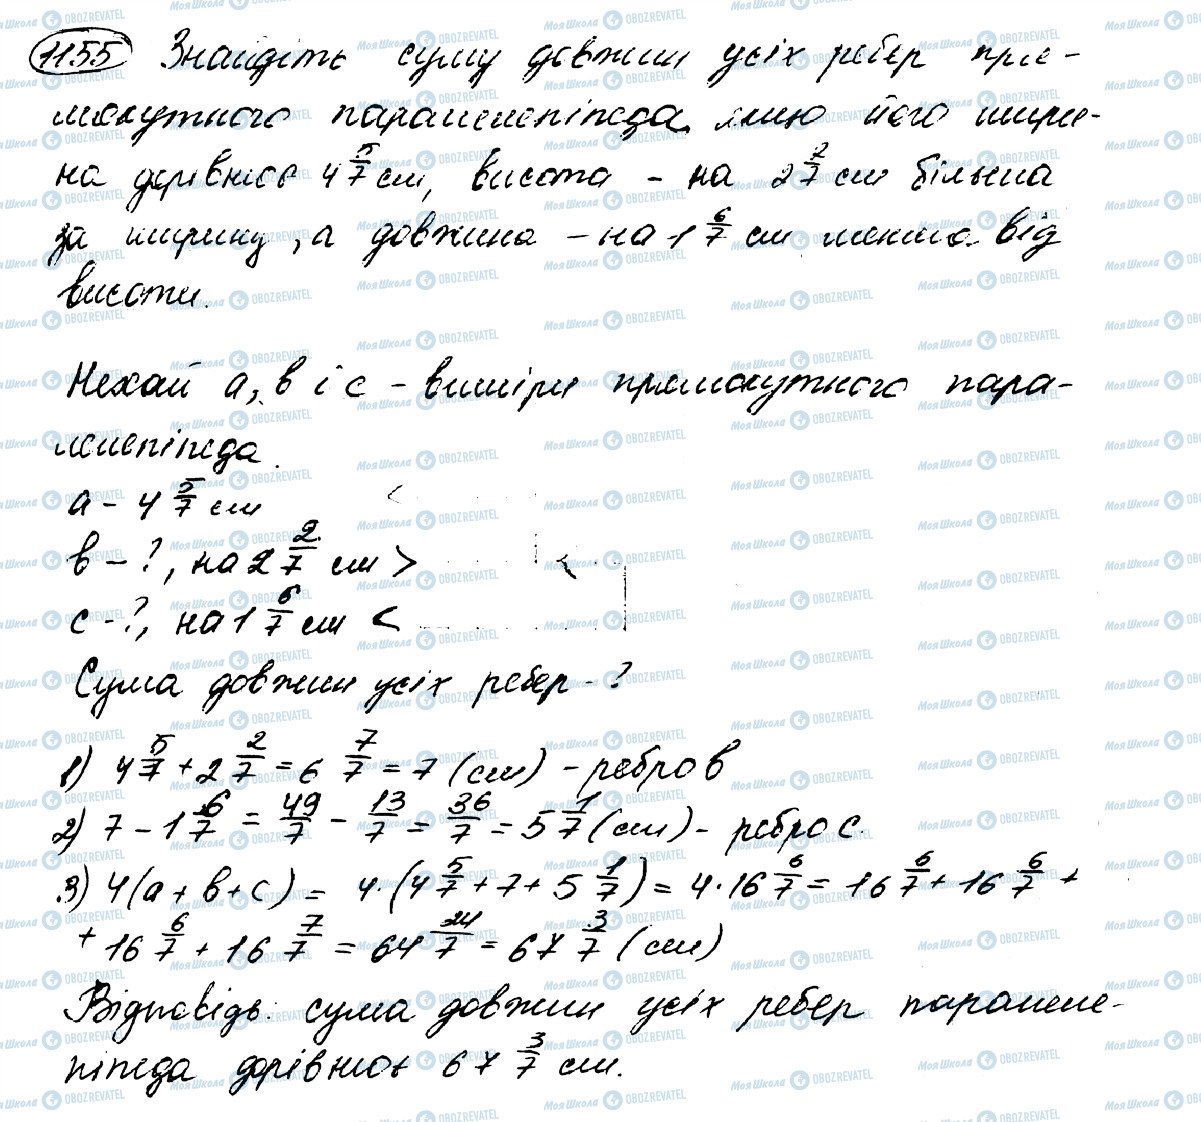 1155 Знайдіть суму довжин усіх ребер пря-
мокутного паралелепіпеда, якщо його шири-
на дорівнює 4 5/7 см, висота - на 2 2/7 см більша
за ширину, а довжина - на 1 6/7 см менша від
висоти.
Нехай а, в і с - виміри прямокутного пара-
лелепіпеда.
а - 4 5/7 см
в - ?, на 2 2/7 см >
с - ?, на 1 6/7 см <
Сума довжин усіх ребер - ?
1) 4 5/7 + 2 2/7 = 6 7/7 = 7 (см) - ребро в
2) 7 - 1 6/7 = 49/7 - 13/7 = 36/7 = 5 1/7 (см) - ребро с.
3) 4(а + в + с) = 4·(4 5/7 + 7 + 5 1/7) = 4·16 6/7 = 16 6/7 + 16 6/7 +
+ 16 6/7 + 16 7/7 = 64 24/7 = 67 3/7 (см)
Відповідь: сума довжин усіх ребер паралеле-
піпеда дорівнює 67 3/7 см.
Моя Школа OBOZREVATEL